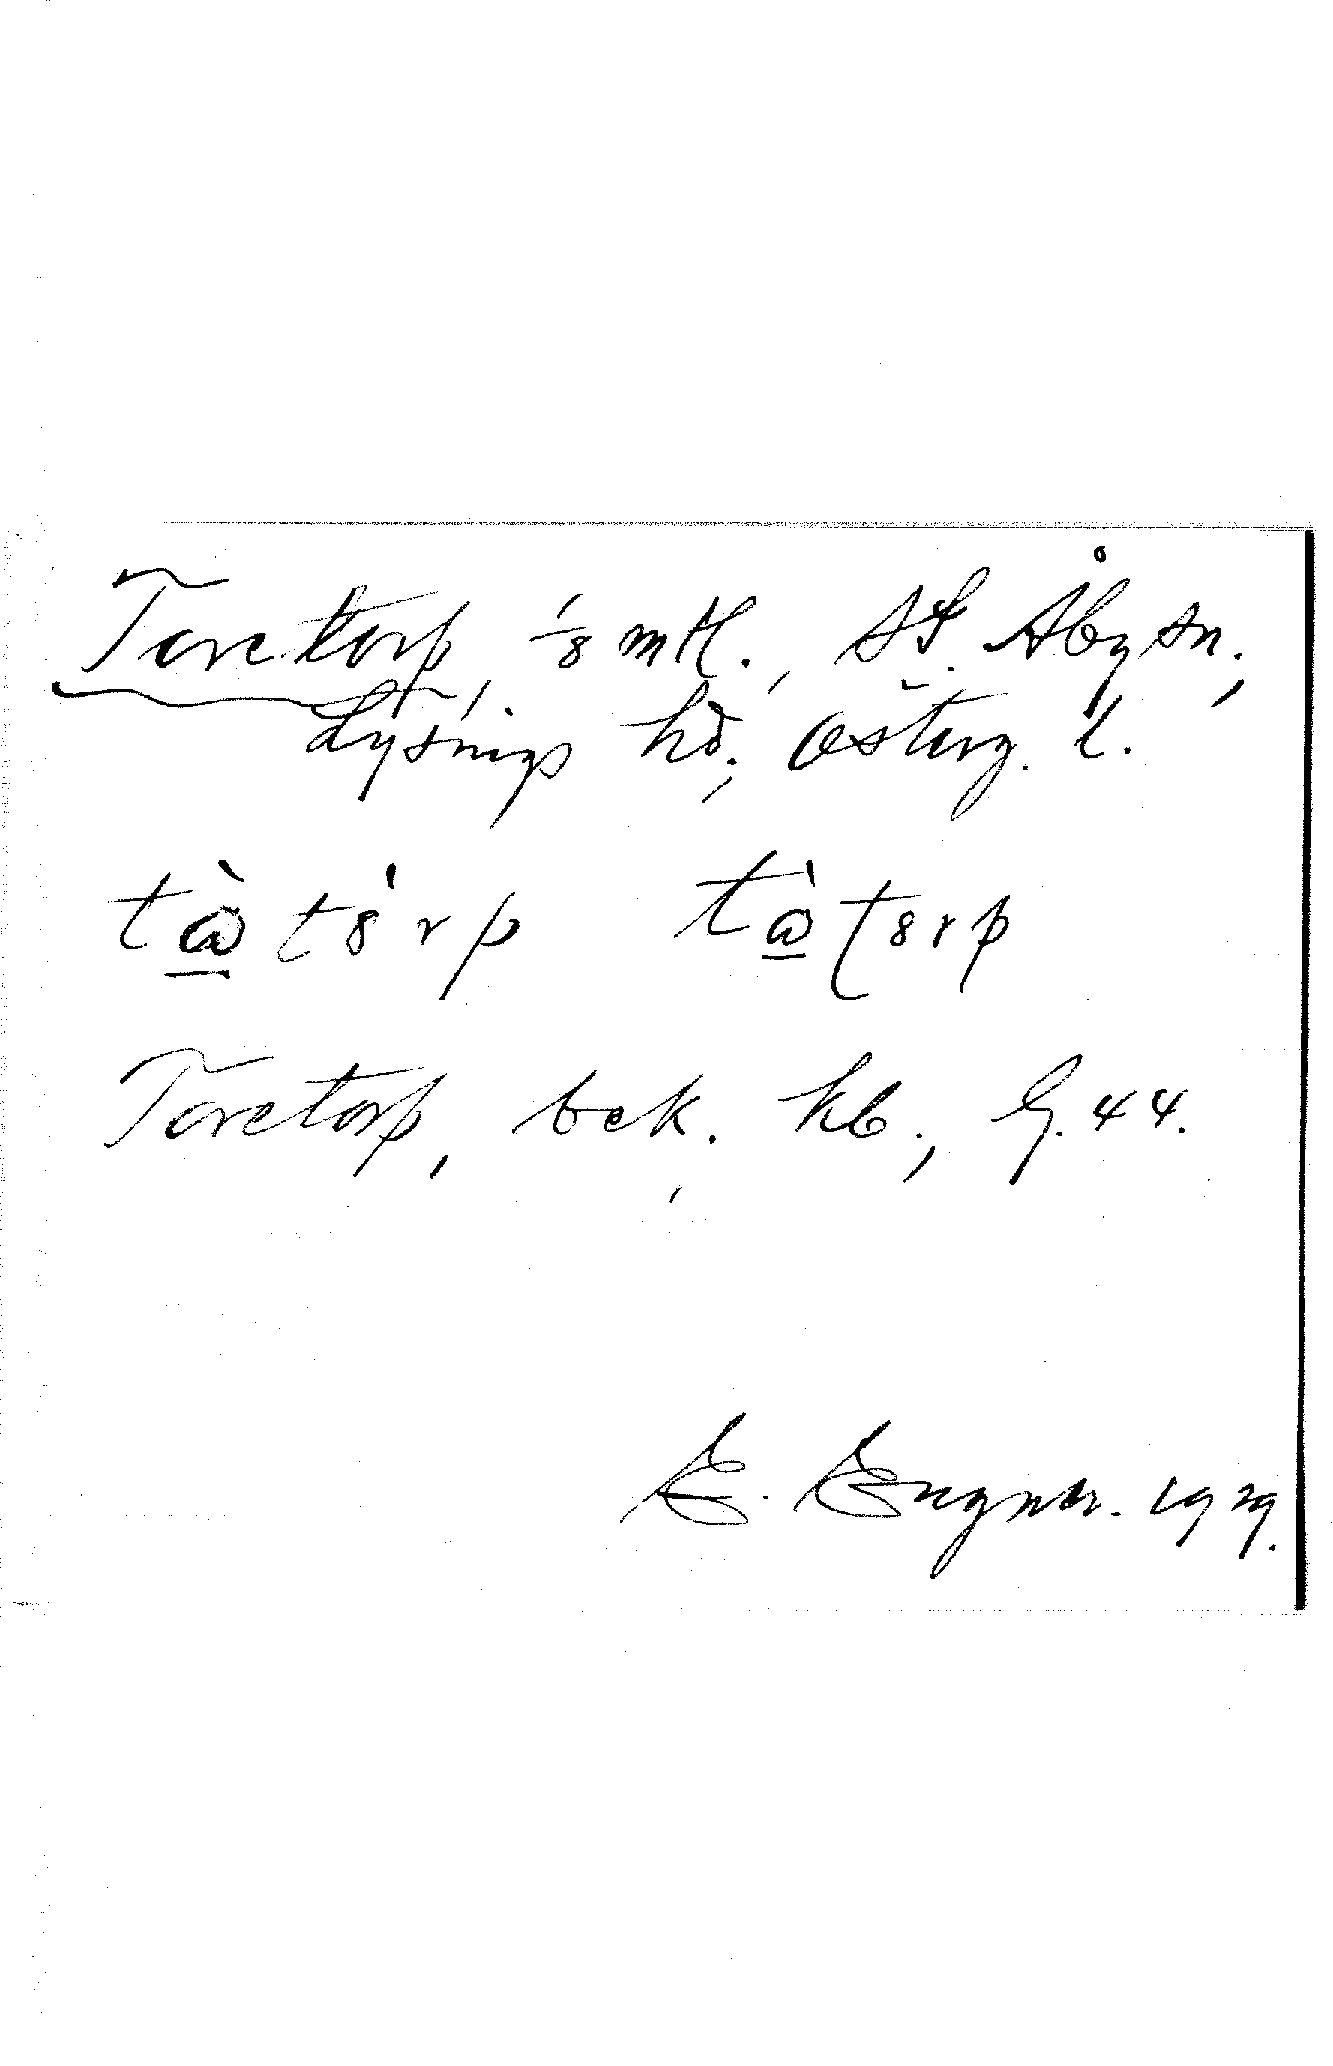 Toretorp, 1/8 mtl., St. Åby sn.,
Lysings hd., Österg. l.
tὼt8́rp tὼʈ8rp
Toretorp, bek. kb., G. 44.
E. Engner. 1929.